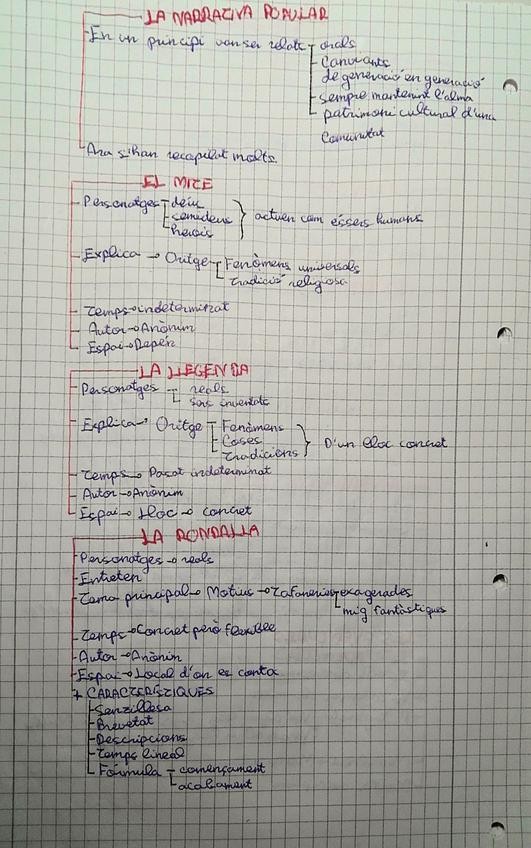 LA NARRATIVA POPULAR
En un principi van ser relats orals
Canviants
de generació en generació
sempre mantenint l'alma
patrimoni cultural d'una
Comunitat
Ara s'han recapilat molts.
EL MITE
Personatges deïu
semideus
herois
actuen com éssers humans
Explica → Oritge Fenòmens universals
tradició religiosa
Temps → indeterminat
Autor → Anònim
Espai → Depèn
LA LLEGENDA
Personatges reals
sers inventats
Explica → Oritge Fenòmens
Coses
Tradiciens
D'un lloc concret
Temps → Pasat indeterminat
Autor → Anònim
Espai → Lloc → concret
LA RONDALLA
Personatges → reals
Entreten
Tema principal → Motius → Tafaneries exagerades
mig fantàstiques
Temps → Concret però flexible
Autor → Anònim
Espai → Local d'on es conta
+ CARACTERÍSTIQUES
Senzillesa
Brevetat
Descripcions
Temps lineal
Fórmula començament
acabament